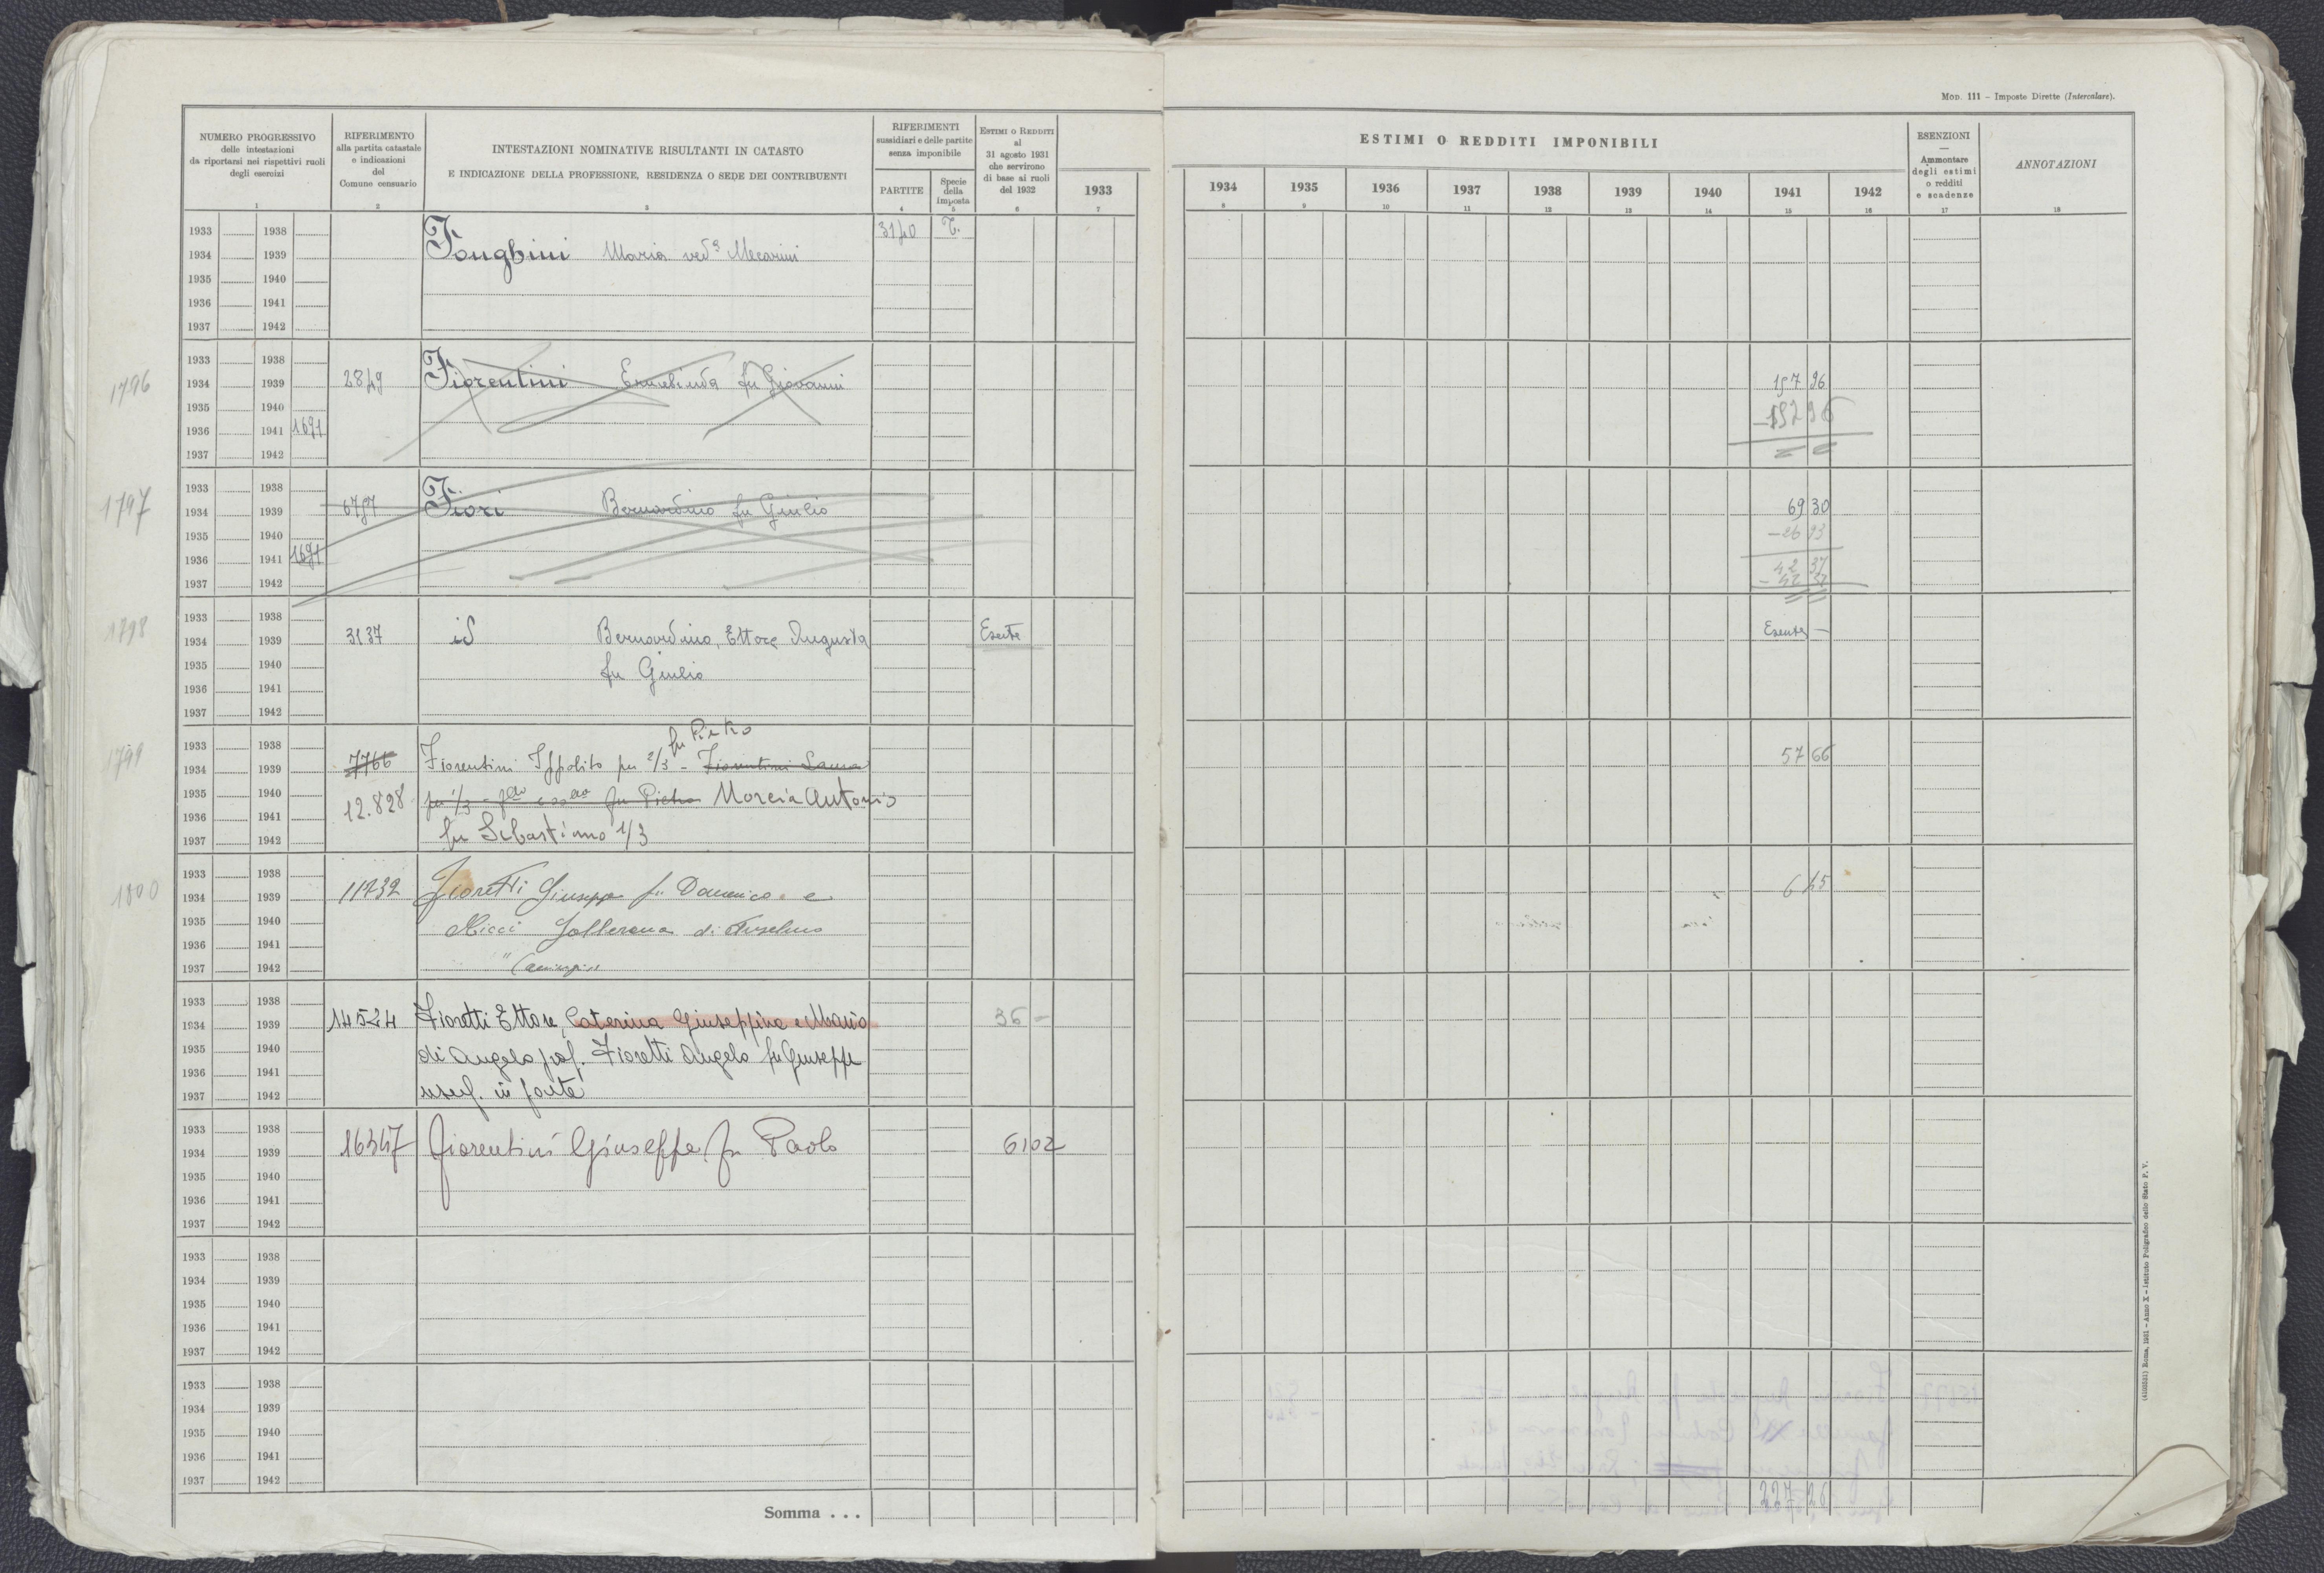 Mod. 111 - Imposte Dirette (Intercalare).
NUMERO PROGRESSIVO
delle intestazioni
da riportarsi nei rispettivi ruoli
degli esercizi
1
RIFERIMENTO
alla partita catastale
e indicazioni
del
Comune censuario
2
INTESTAZIONI NOMINATIVE RISULTANTI IN CATASTO
E INDICAZIONE DELLA PROFESSIONE, RESIDENZA O SEDE DEI CONTRIBUENTI
3
RIFERIMENTI
sussidiari e delle partite
senza imponibile
PARTITE
4
Specie
della
imposta
5
Estimi o Redditi
al
31 agosto 1931
che servirono
di base ai ruoli
del 1932
6
1933
7
ESTIMI O REDDITI IMPONIBILI
1934 1935 1936 1937 1938 1939 1940 1941 1942
8 9 10 11 12 13 14 15 16
ESENZIONI
Ammontare
degli estimi
o redditi
e scadenze
17
ANNOTAZIONI
18
1933 1938 3140 T.
1934 1939 Fonghini Maria ved.a Mecarini
1935 1940
1936 1941
1937 1942
1933 1938
1796 1934 1939 2849 Fiorentini Ermelinda fu Giovanni 157 96
1935 1940 -157 96
1936 1941 1691
1937 1942
1933 1938
1797 1934 1939 6797 Fiori Bernardino fu Giulio 69 30
1935 1940 -26 93
1936 1941 1691 42 37
1937 1942 -42 37
1933 1938
1798 1934 1939 3137 id Bernardino, Ettore Augusta Esente Esente -
1935 1940 fu Giulio
1936 1941
1937 1942
fu Pietro
1933 1938
1799 1934 1939 7766 Fiorentini Ippolito per 2/3 - Fiorentini Laura 57 66
1935 1940 12.828 per 1/3 fu Pietro Morcia Antonio
1936 1941
1937 1942 fu Sebastiano 1/3
1933 1938
1800 1934 1939 11732 Fioretti Giuseppe fu Domenico e 6 45
1935 1940 Ricci di Anselmo
1936 1941
1937 1942
1933 1938
1934 1939 14524 Fioretti Ettore, Caterina Giuseppina e Mario 36 -
1935 1940 di Angelo prop. Fioretti Angelo fu Giuseppe
1936 1941
1937 1942 usuf. in parte
1933 1938
1934 1939 16347 Fiorentini Giuseppe fu Paolo 6102
1935 1940
1936 1941
1937 1942
1933 1938
1934 1939
1935 1940
1936 1941
1937 1942
1933 1938
1934 1939
1935 1940
1936 1941
1937 1942
Somma . . . 227 26
(4103521) Roma, 1931 - Anno X - Istituto Poligrafico dello Stato P. V.